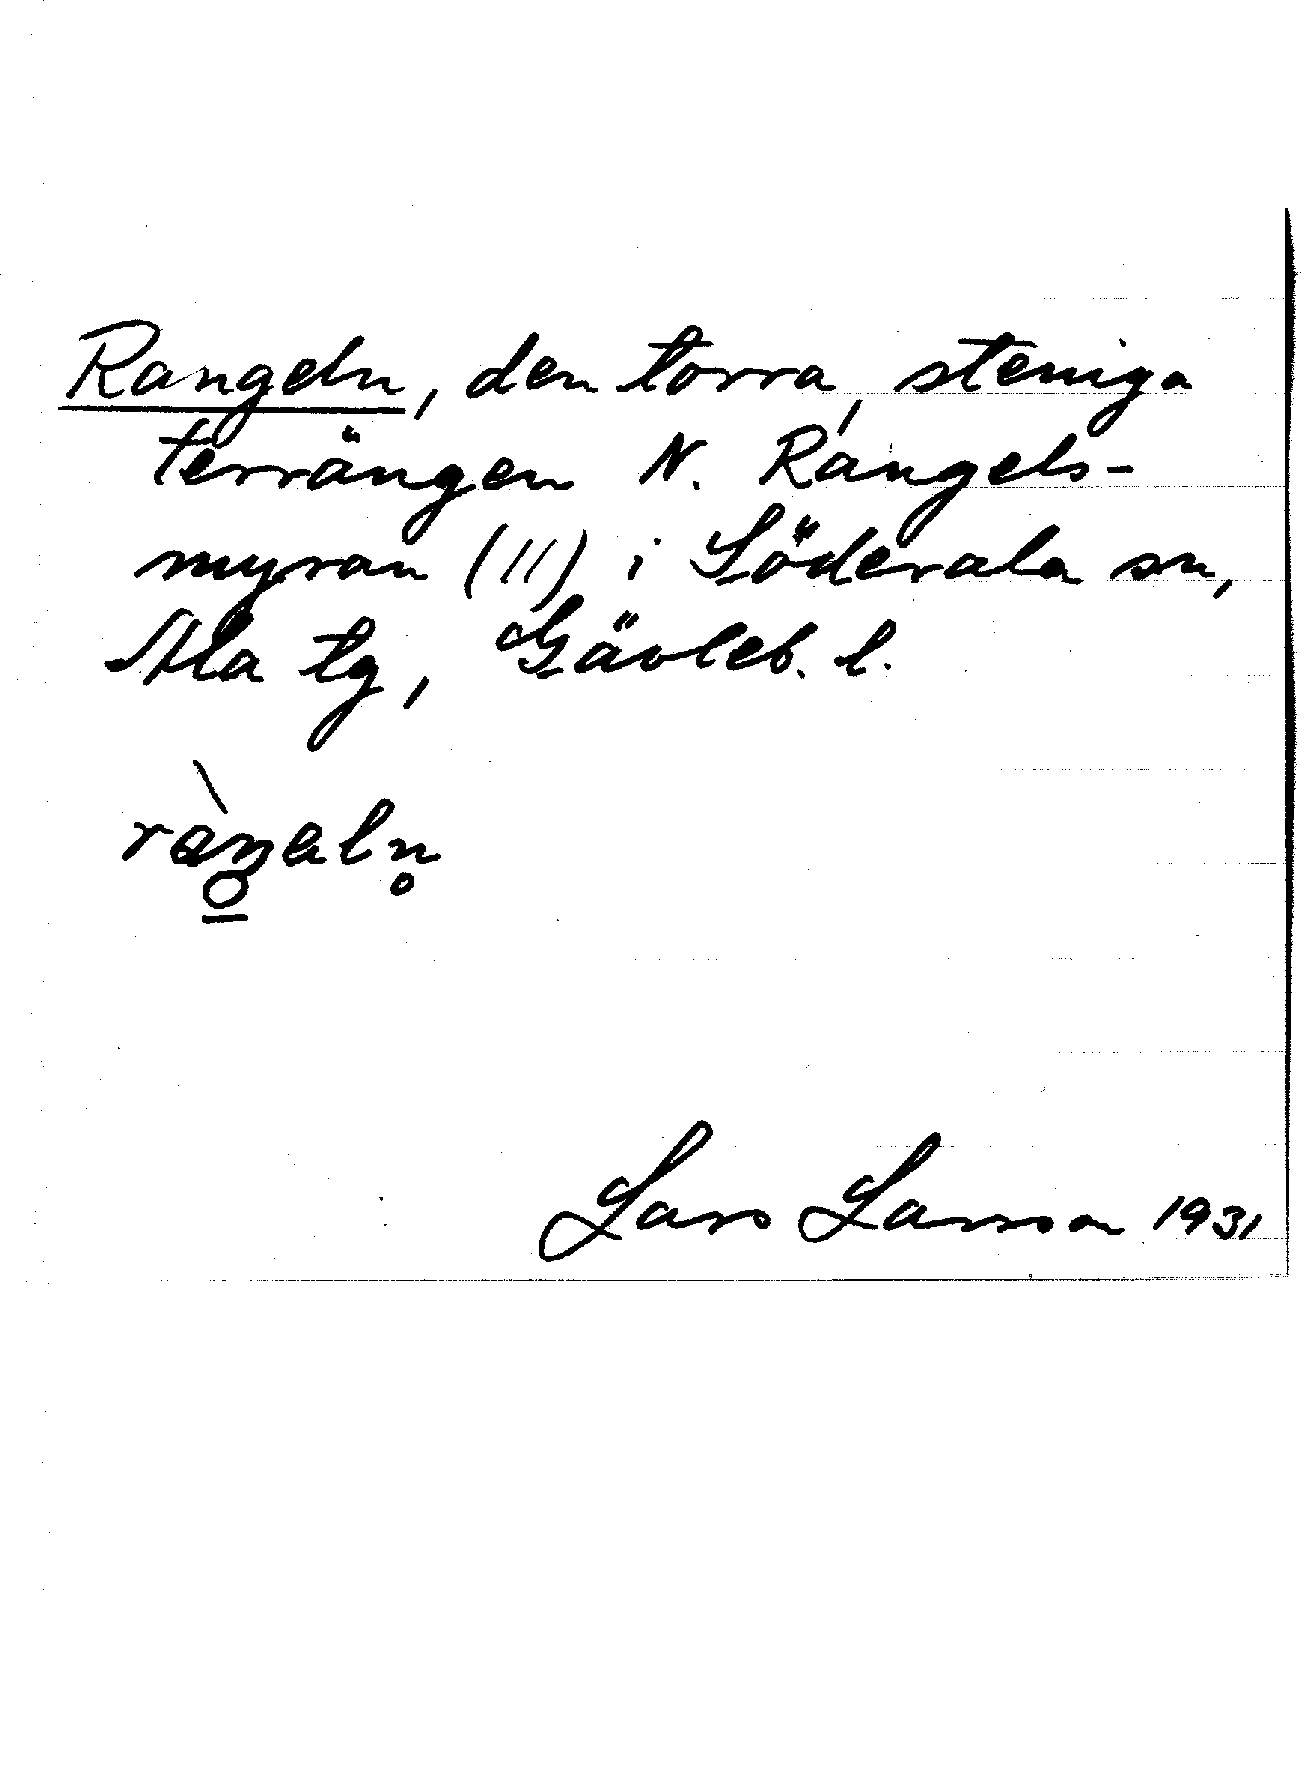 Rangeln, den torra, steniga
terrängen N. Rangels-
myran (11) i Söderala sn,
Ala tg, Gävleb. l.
ràŋəln̥
Lars Larsson 1931